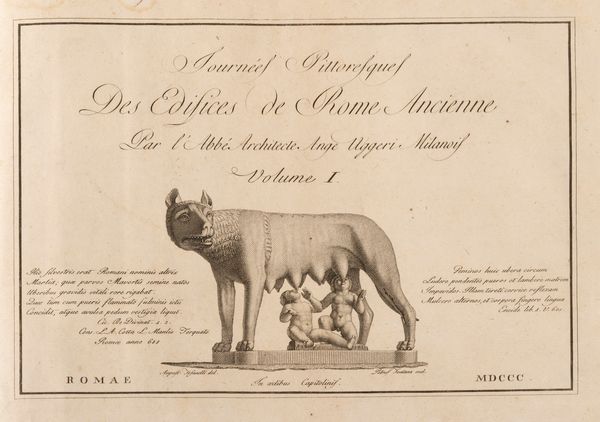 Journées Pittoresques
Des Edifices de Rome Ancienne
Par l'Abbé Architecte Ange Uggeri Milanois
Volume I.
Hic silvestris erat Romani nominis altrix
Martia; quæ parvos Mavortis semine natos
Uberibus gravidis vitali rore rigabat
Quæ tum cum pueris flammato fulminis ictu
Concidit, atque avulsa pedum vestigia liquit.
Cic. De Divinat. 1. 2.
Cons. L. A. Cotta L. Manlio Torquato
Romæ anno
Geminos huic ubera circum
Ludere pendentes pueros et lambere matrem
Impavidos. Illam tereti cervice reflexam
Mulcere alternos, et corpora fingere lingua
Eneid. lib. 8. V.
August. del.
Pietro Fontana incid.
In ædibus Capitolinis.
ROMAE
MDCCC.